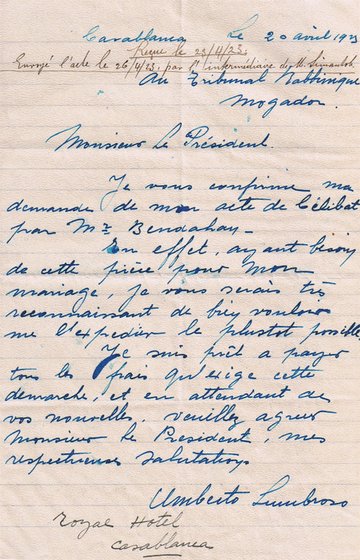 Casablanca Le 20 avril 1923
Reçue le 23/4/23.
Envoyé l'acte le 26/4/23, par l'intermédiaire de Mr
Au Tribunal Rabbinique
Mogador
Monsieur Le Président.
Je vous confirme ma
demande de mon acte de Célibat
par Mr Bendahan.
En effet, ayant besoin
de cette pièce pour mon
mariage, je vous serais très
reconnaissant de bien vouloir
me l'expedier le plustot possible
Je suis prêt a payer
tous les frais qu'exige cette
demarche, et en attendant de
vos nouvelles, veuillez agreer
Monsieur le President, mes
respectueuses salutations
Umberto Lumbroso
Royal Hotel
Casablanca